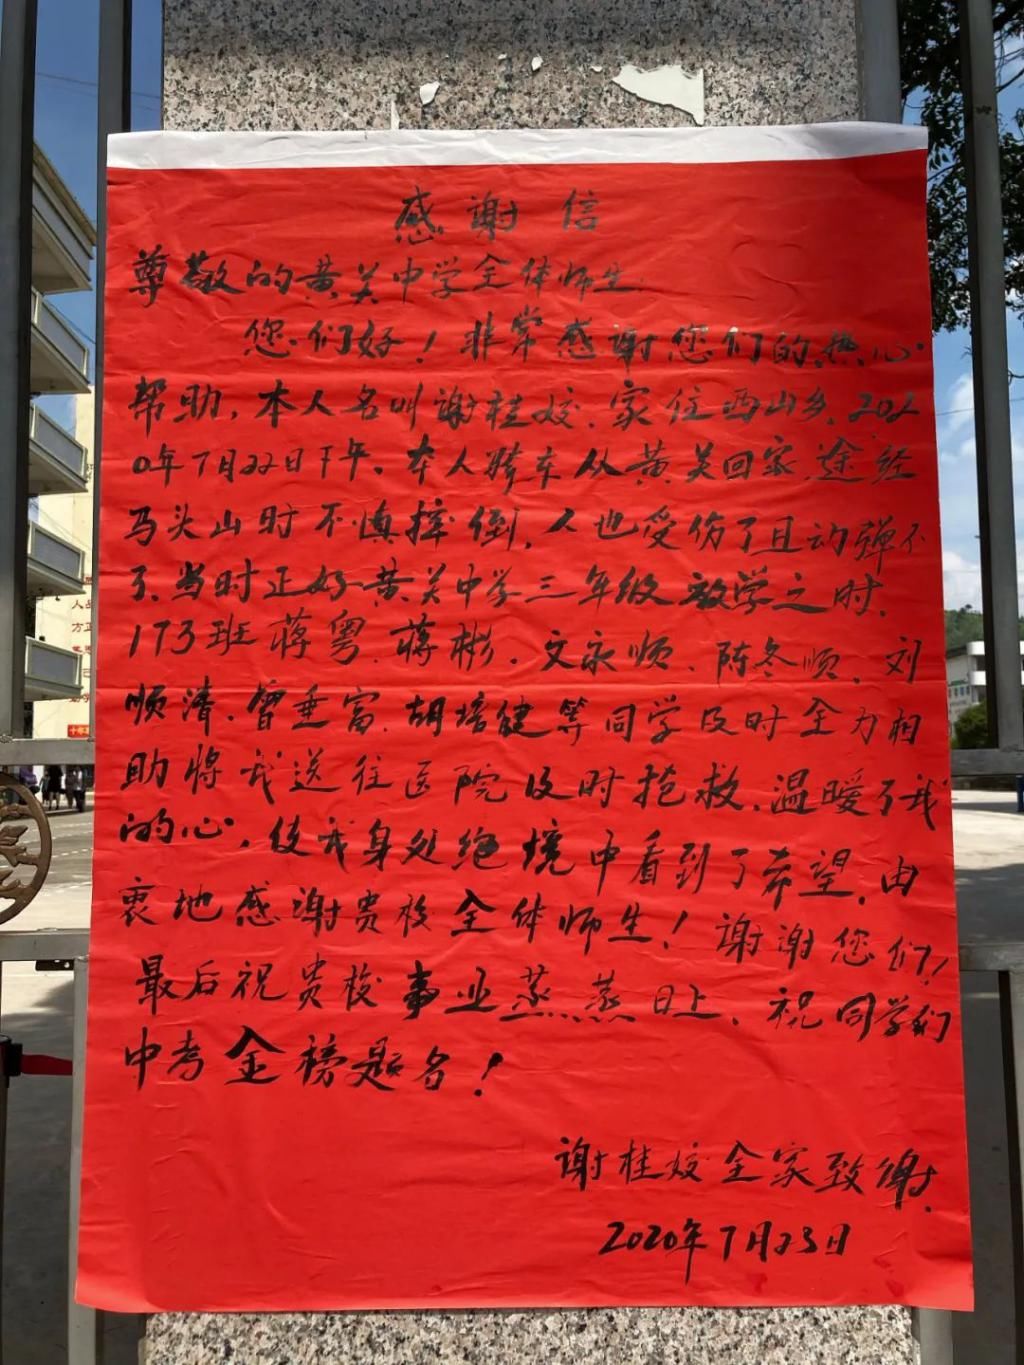 感谢信
尊敬的黄关中学全体师生:
您们好!非常感谢您们的热心
帮助,本人名叫谢桂姣,家住西山乡,202
0年7月22日下午,本人骑车从黄关回家,途经
马头山时不慎摔倒,人也受伤了且动弹不
了,当时正好黄关中学三年级放学之时,
173班蒋粤、蒋彬、文永顺、陈冬顺、刘
顺清、曾垂富、胡培健等同学及时全力相
助将我送往医院及时抢救,温暖了我
的心,使我身处绝境中看到了希望,由
衷地感谢贵校全体师生!谢谢您们!
最后祝贵校事业蒸蒸日上、祝同学们
中考金榜题名!
谢桂姣全家致谢
2020年7月23日